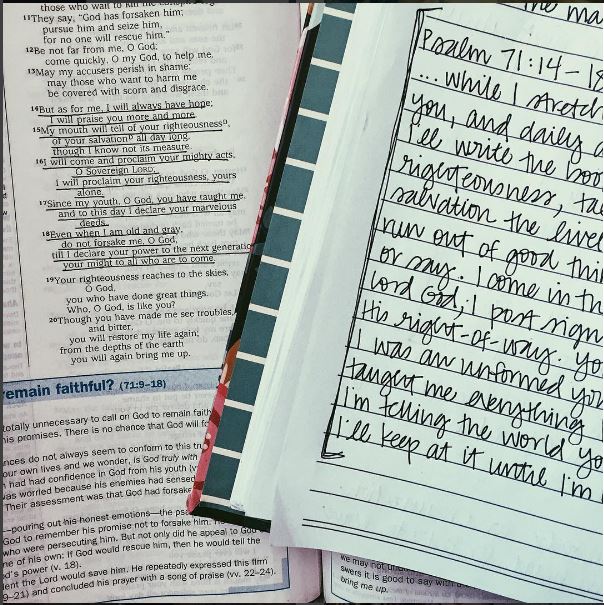 those who wait to kill me conspire
¹¹They say, "God has forsaken him;
pursue him and seize him,
for no one will rescue him."
¹²Be not far from me, O God;
come quickly, O my God, to help me.
¹³May my accusers perish in shame;
may those who want to harm me
be covered with scorn and disgrace.
¹⁴But as for me, I will always have hope;
I will praise you more and more.
¹⁵My mouth will tell of your righteousness,
of your salvation all day long,
though I know not its measure.
¹⁶I will come and proclaim your mighty acts,
O Sovereign LORD;
I will proclaim your righteousness, yours
alone.
¹⁷Since my youth, O God, you have taught me,
and to this day I declare your marvelous
deeds.
¹⁸Even when I am old and gray,
do not forsake me, O God,
till I declare your power to the next generation
your might to all who are to come.
¹⁹Your righteousness reaches to the skies,
O God,
you who have done great things.
Who, O God, is like you?
²⁰Though you have made me see troubles,
and bitter,
you will restore my life again;
from the depths of the earth
you will again bring me up.
emain faithful? (71:9–18)
totally unnecessary to call on God to remain faith
his promises. There is no chance that God will f
nces do not always seem to conform to this tr
our own lives and we wonder, is God truly with
had had confidence in God from his youth (v
was worried because his enemies had sensed
Their assessment was that God had forsake
—pouring out his honest emotions—the psa
God to remember his promise not to forsake him.
who were persecuting him. But not only did he appeal to God
ne of his own: If God would rescue him, then he would tell the
d's power (v. 18).
ent the Lord would save him. He repeatedly expressed this firm
9–21) and concluded his prayer with a song of praise (vv. 22–24).
the ma
Psalm 71:14–18
... while I stretch
you, and daily a
I'll write the boo
righteousness, ta
salvation the livel
run out of good thi
or say. I come in th
Lord God; I post sign
His right-of-way. Yo
I was an unformed you
taught me everything
I'm telling the world yo
I'll keep at it until I'm
we may not
swers it is good to say with
bring me up.